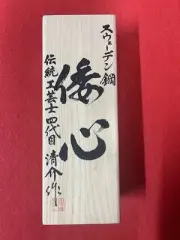 スウェーデン鋼
倭心
伝統工芸士四代目 清介作